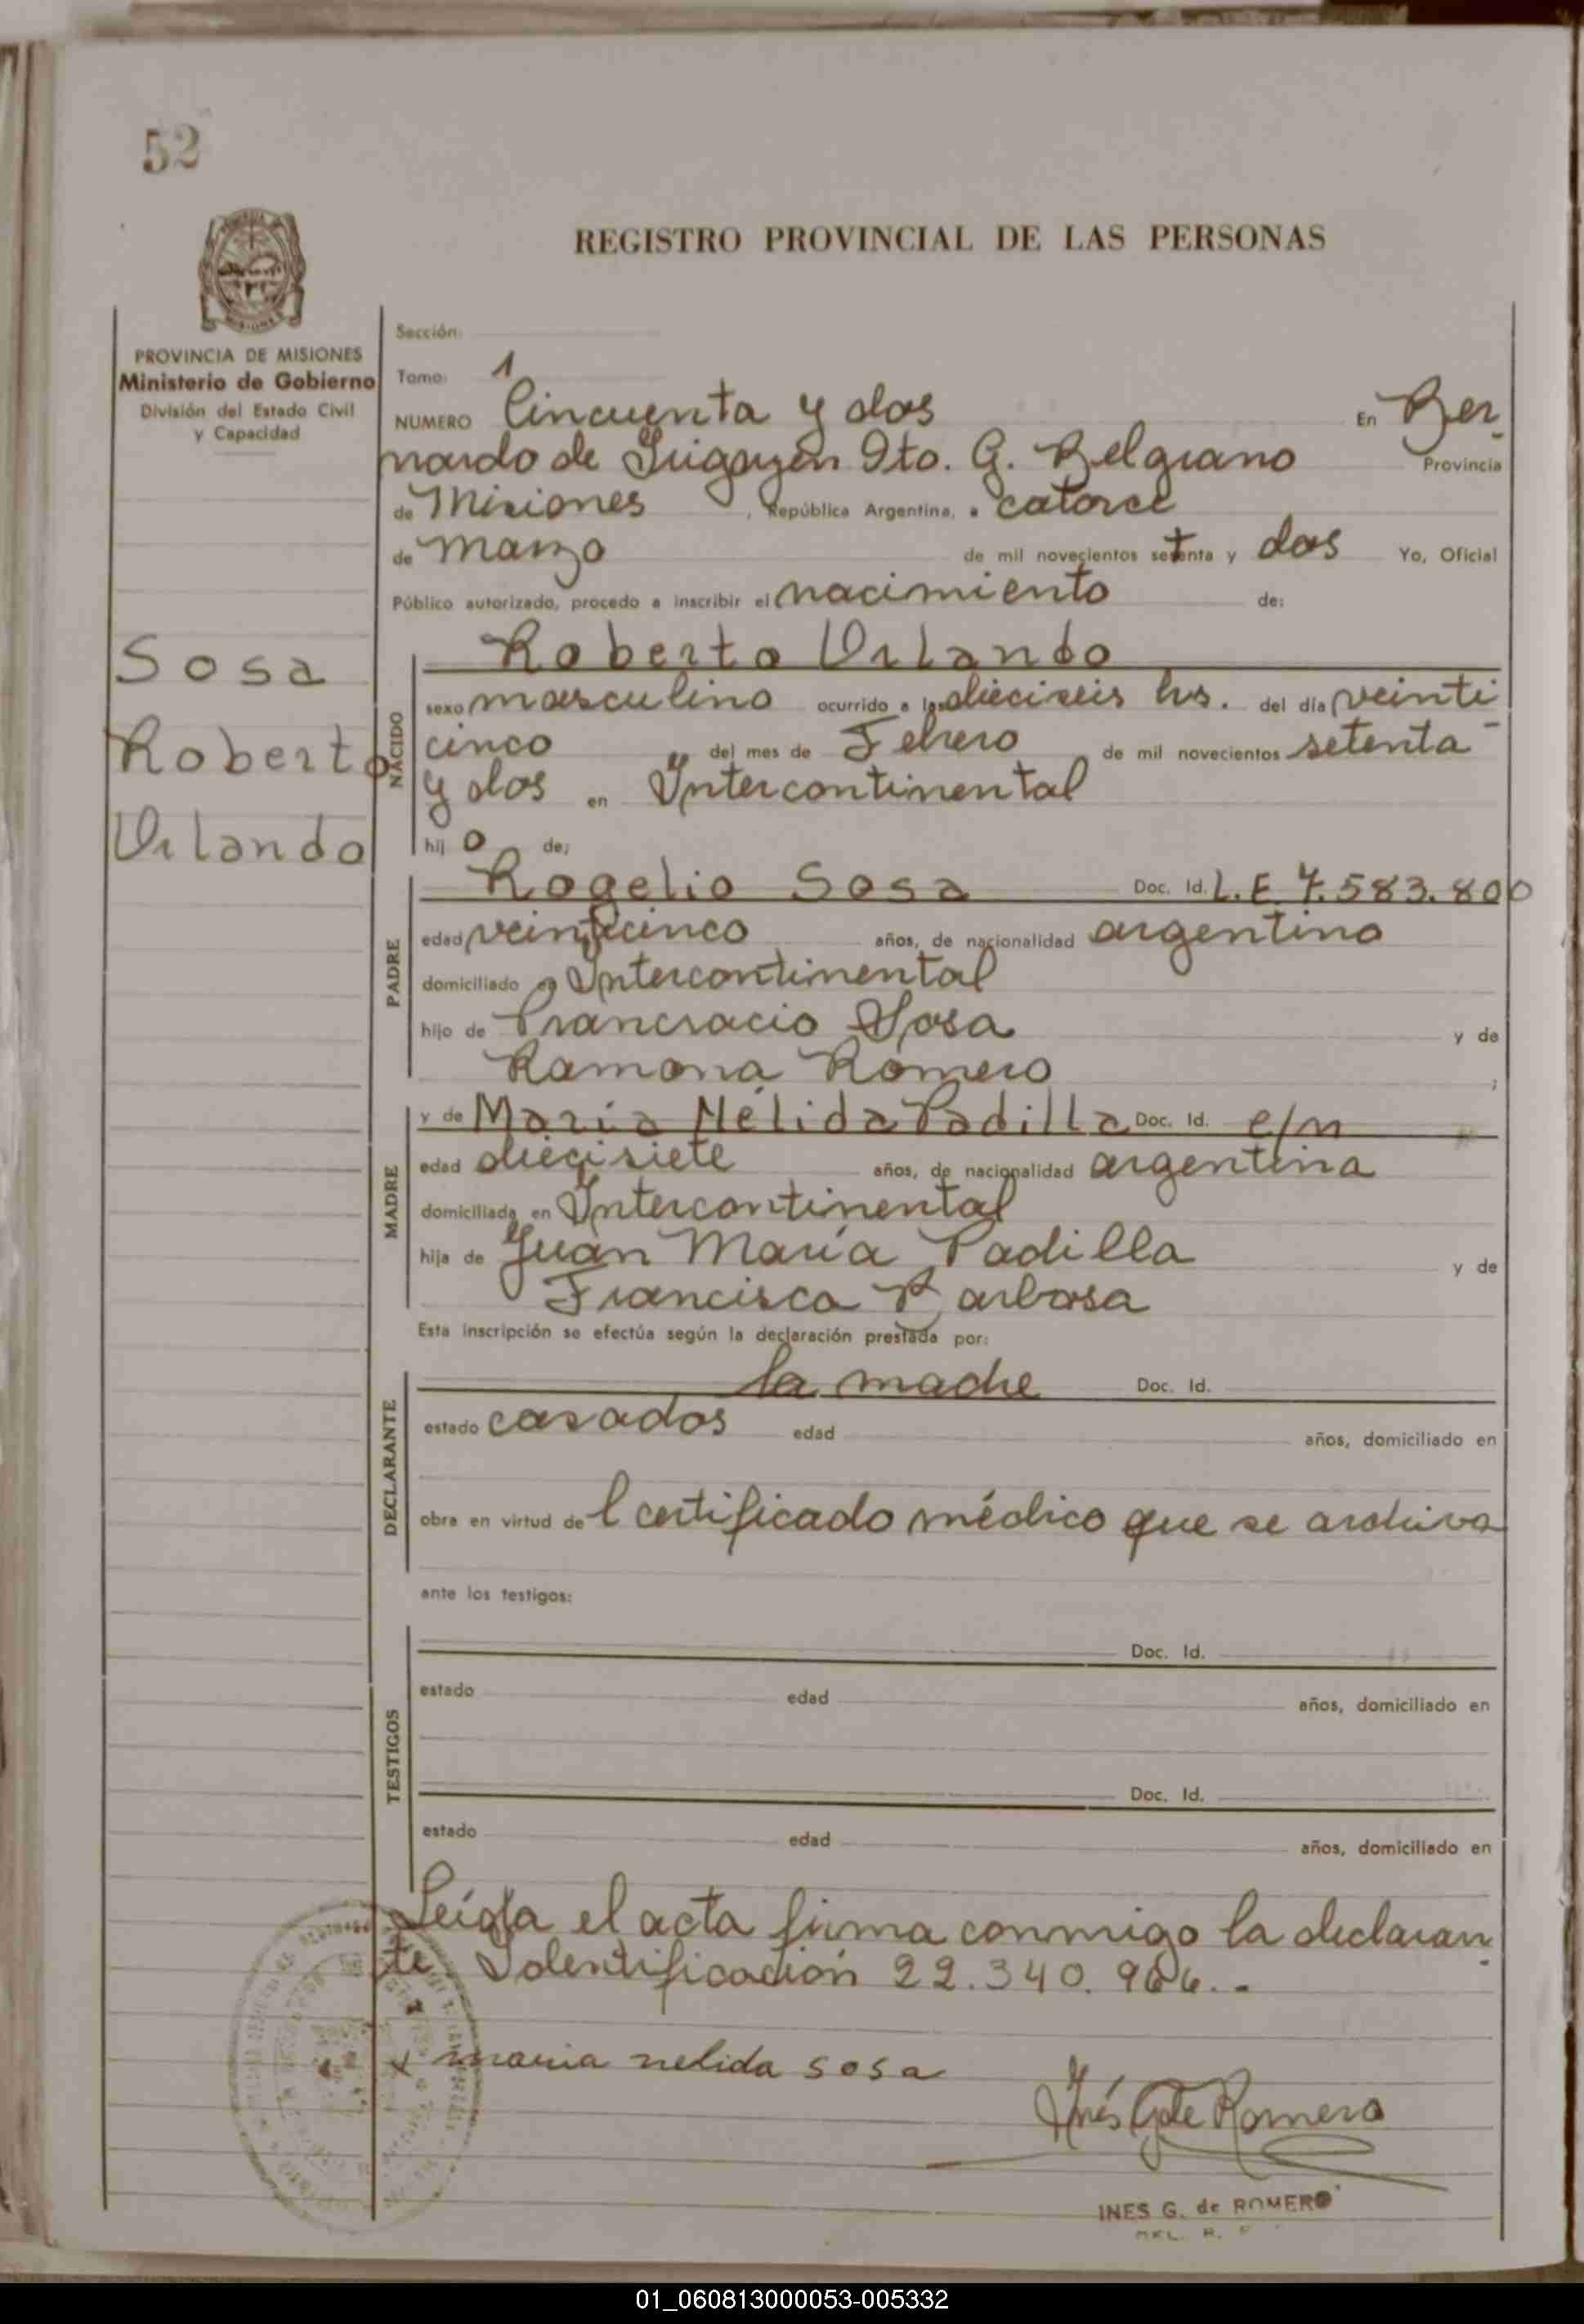 52
REGISTRO PROVINCIAL DE LAS PERSONAS
PROVINCIA DE MISIONES
Ministerio de Gobierno
División del Estado Civil
y Capacidad
Sosa
Roberto
Orlando
Sección:
Tomo: 1
NUMERO Cincuenta y dos En Ber
nardo de Irigoyen Dto. G. Belgrano Provincia
de Misiones, República Argentina, a catorce
de marzo de mil novecientos setenta y dos Yo, Oficial
Público autorizado, procedo a inscribir el nacimiento de:
NACIDO
Roberto Orlando
sexo masculino ocurrido a las dieciseis hs. del día veinti
cinco del mes de Febrero de mil novecientos setenta
y dos en Intercontinental
hij o de;
PADRE
Rogelio Sosa Doc. Id. L.E 7.583.800
edad veinticinco años, de nacionalidad argentino
domiciliado en Intercontinental
hijo de Prancracio Sosa y de
Ramona Romero ;
MADRE
y de María Nélida Padilla Doc. Id. e/n
edad diecisiete años, de nacionalidad argentina
domiciliada en Intercontinental
hija de Juan María Padilla y de
Francisca Barbosa
Esta inscripción se efectúa según la declaración prestada por:
DECLARANTE
la madre Doc. Id.
estado casados edad años, domiciliado en
obra en virtud de l certificado médico que se archiva
ante los testigos:
TESTIGOS
Doc. Id.
estado edad años, domiciliado en
Doc. Id.
estado edad años, domiciliado en
Leída el acta firma conmigo la declaran
te. Identificación 22.340.966.-
x maria nelida sosa
Inés G de Romero
INES G. de ROMERO
01_060813000053-005332